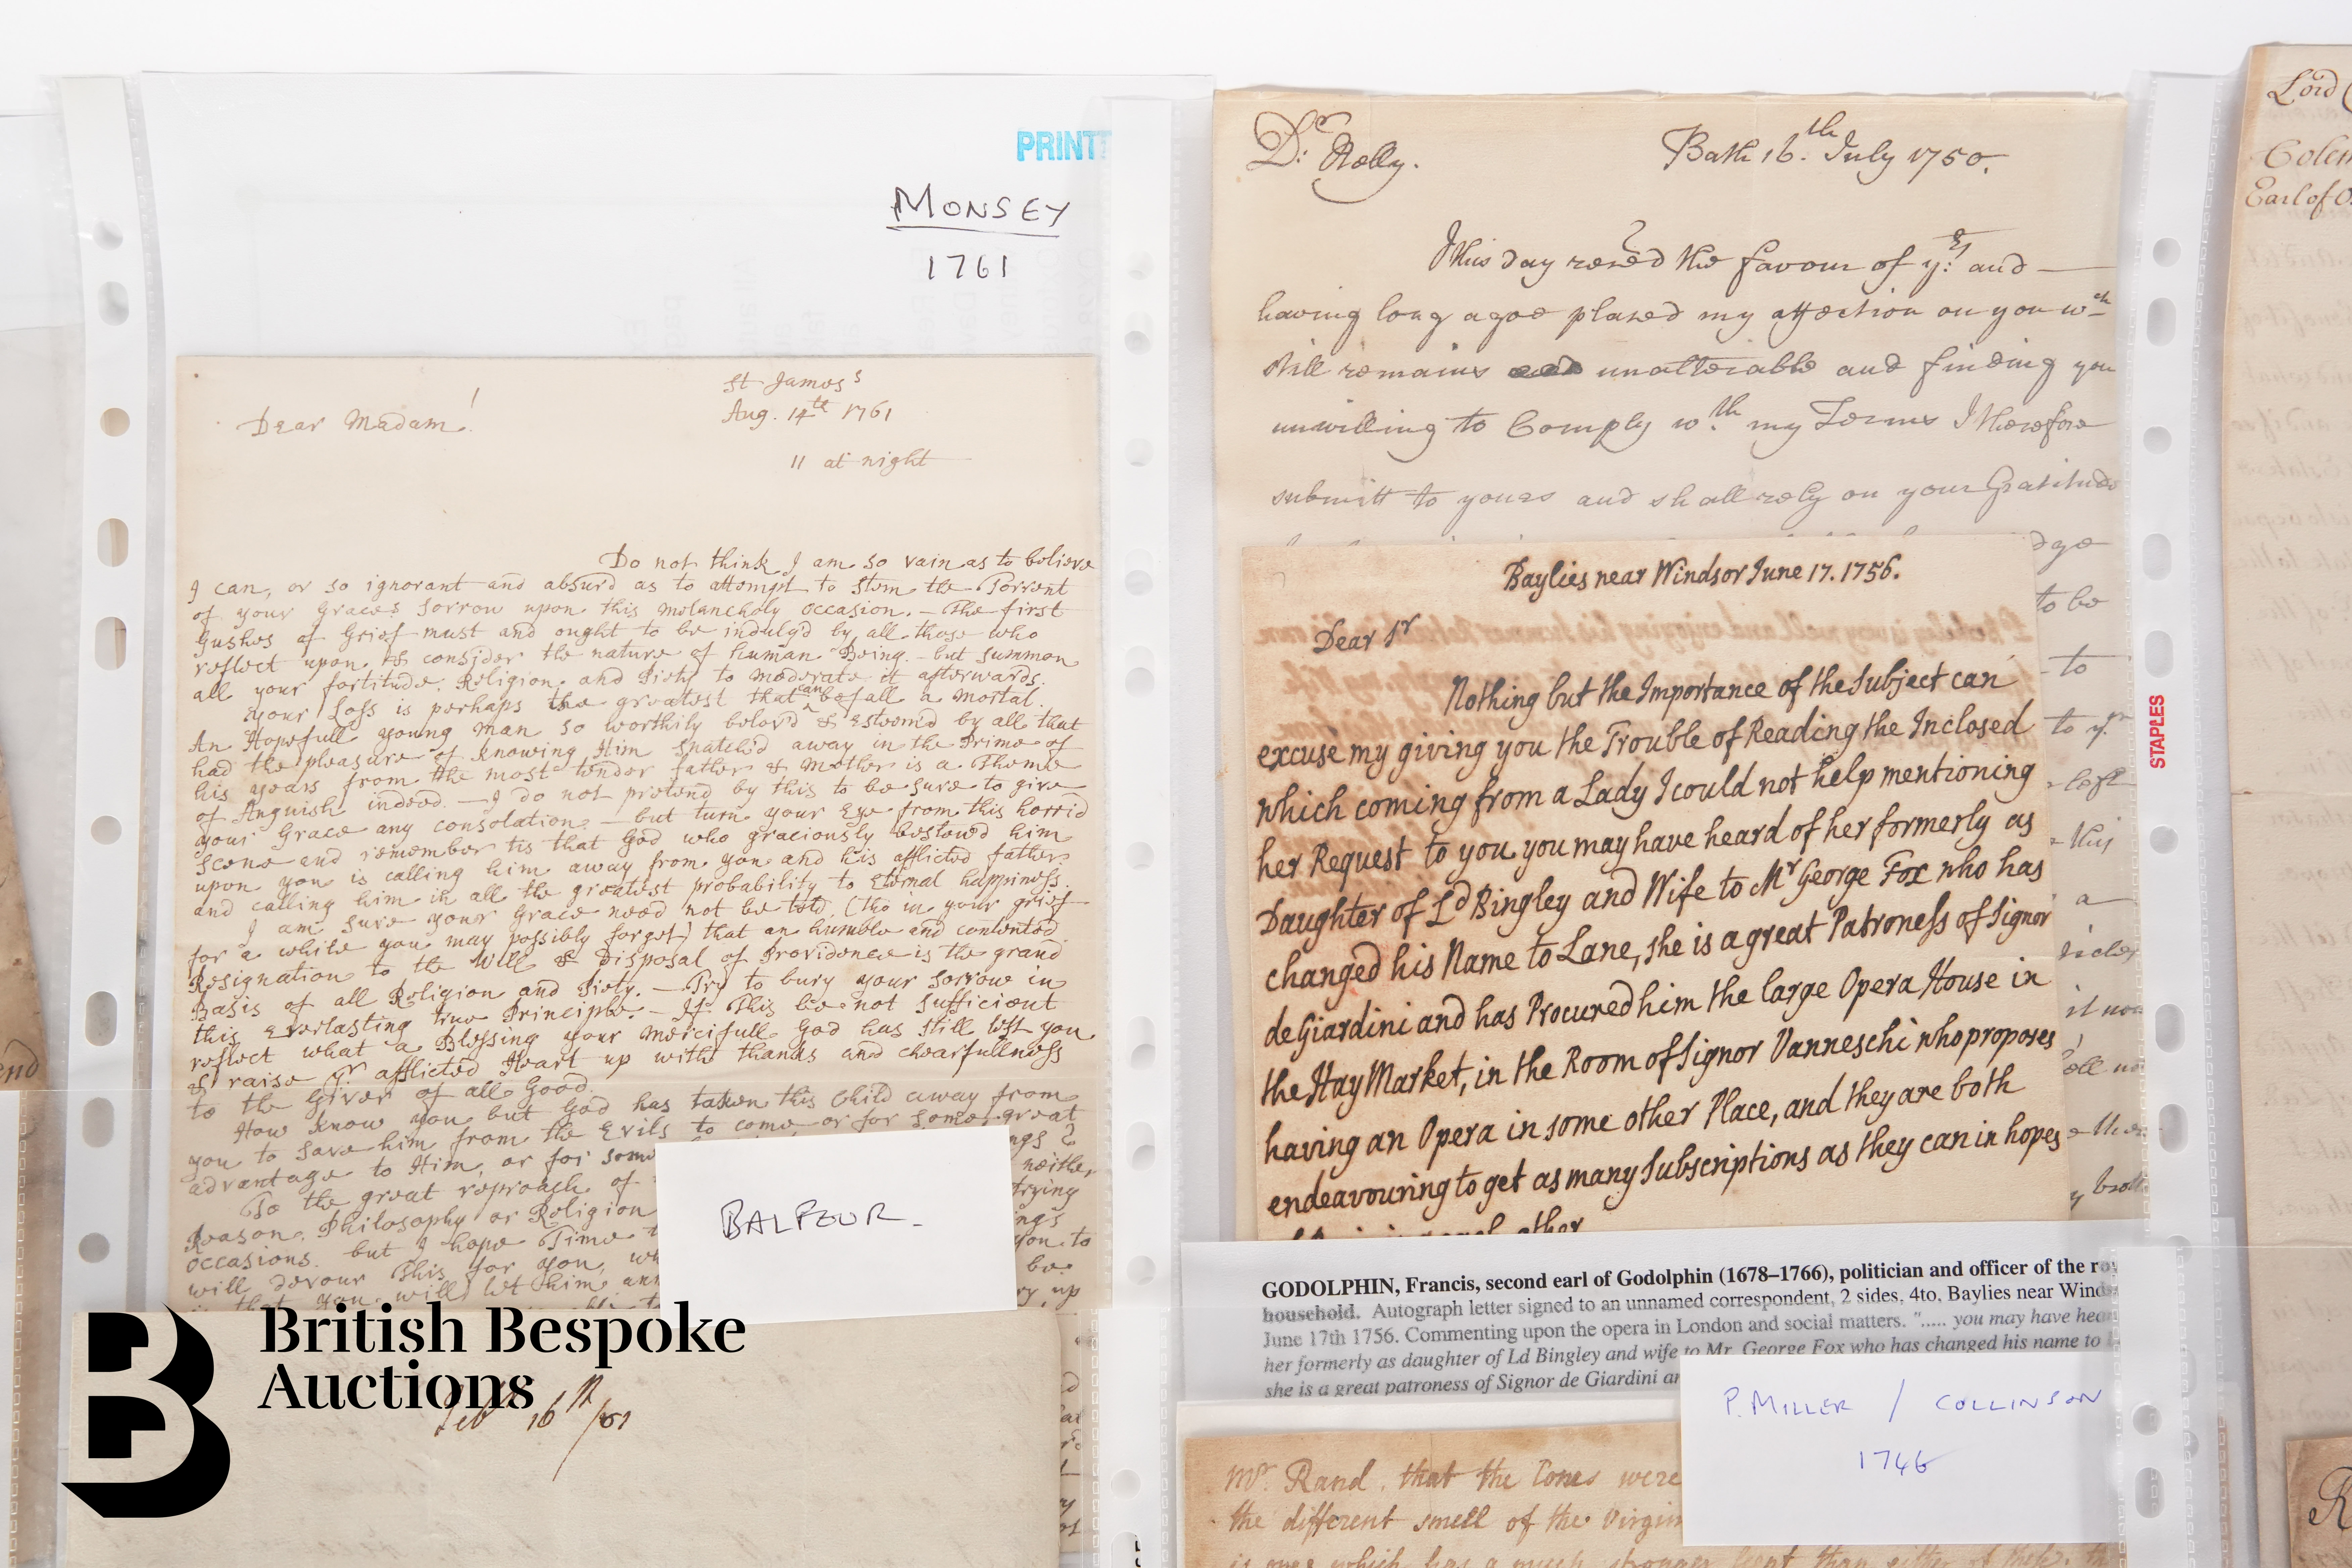 PRINT
MONSEY
1761
St James's
Aug. 14th 1761
11 at night
Dear Madam!
Do not think I am so vain as to believe
I can, or so ignorant and absurd as to attempt to stem the Torrent
of your Graces Sorrow upon this melancholy occasion. – The first
Gushes of Grief must and ought to be indulg'd by all those who
reflect upon & consider the nature of human Being. – but summon
all your fortitude, Religion, and Piety to moderate it afterwards.
your Loss is perhaps the greatest that can befall a mortal.
An Hopefull young man so worthily belov'd & Esteem'd by all that
had the pleasure of knowing Him snatch'd away in the Prime of
his years from the most tender father & Mother is a Theme
of Anguish indeed. – I do not pretend by this to be sure to give
your Grace any consolation – but turn your Eye from this horrid
Scene and remember tis that God who graciously bestow'd him
upon you is calling him away from you and his afflicted father
and calling him in all the greatest probability to Eternal happiness.
I am sure your Grace need not be told, (tho in your grief
for a while you may possibly forget) that an humble and contented
Resignation to the Will & Disposal of Providence is the grand
Basis of all Religion and Piety. – Try to bury your sorrow in
this Everlasting true Principle. – If This be not sufficient
reflect what a Blessing your mercifull God has still left you
& raise yr afflicted Heart up with thanks and chearfullness
to the Giver of all Good.
How know you but God has taken this Child away from
you to save him from the Evils to come, or for some great
advantage to Him, or for some ngs ?
To the great reproach of neither
Reason, Philosophy or Religion trying
occasions. but I hope Time ings
will devour This for you, wh you to
you will let him ann be
up
BALFOUR.
British Bespoke
Auctions
Feb 16th /61
Dr: Relly.
Bath 16.th July 1750.
I this day reced the favour of yrs: and
having long agoe placed my affection on you wch
still remains unalterable and finding you
unwilling to Comply wth my Terms I therefore
submitt to yours and shall rely on your Gratitude
dge
to be
to
to yr
left
this
a
it now
Baylies near Windsor June 17. 1756.
Dear Sr
Nothing but the Importance of the Subject can
excuse my giving you the Trouble of Reading the Inclosed
which coming from a Lady I could not help mentioning
her Request to you you may have heard of her formerly as
Daughter of Ld Bingley and Wife to Mr George Fox who has
changed his Name to Lane, she is a great Patroness of Signor
de Giardini and has Procured him the large Opera House in
the Hay Market, in the Room of Signor Vanneschi who proposes
having an Opera in some other Place, and they are both
endeavouring to get as many Subscriptions as they can in hopes
other
GODOLPHIN, Francis, second earl of Godolphin (1678–1766), politician and officer of the ro
household. Autograph letter signed to an unnamed correspondent, 2 sides, 4to, Baylies near Winds
June 17th 1756. Commenting upon the opera in London and social matters. "..... you may have hea
her formerly as daughter of Ld Bingley and wife to Mr. George Fox who has changed his name to
she is a great patroness of Signor de Giardini an
P. MILLER / COLLINSON
1746
Mr. Rand, that the Cones were
the different smell of the Virgin
is one which has a much stronger scent than either of
STAPLES
Lord
Colem
Earl of O